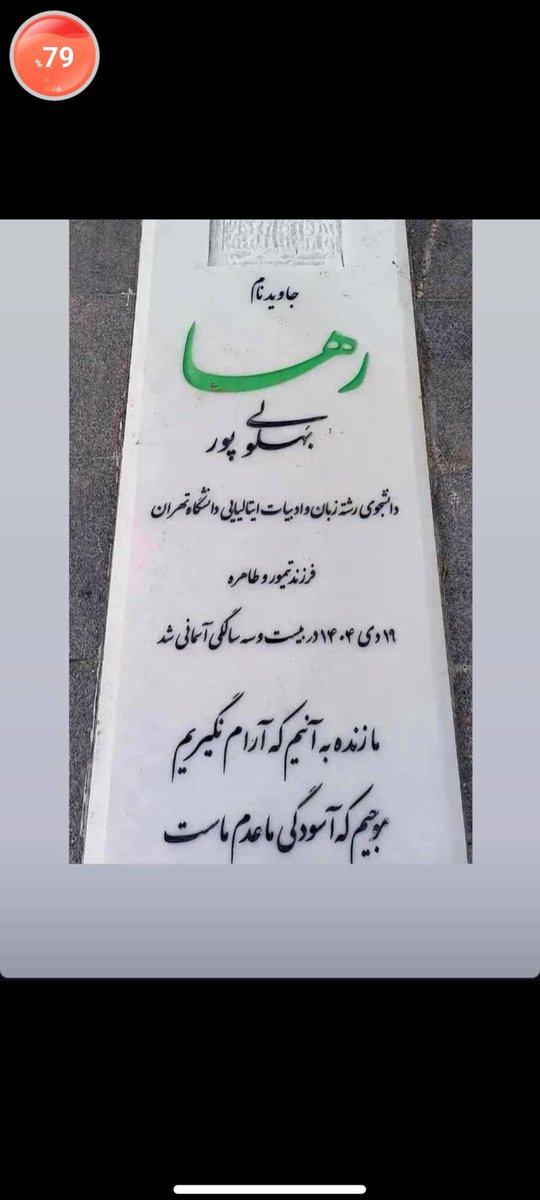 %79
جاوید نام
رها
بهلولی پور
دانشجوی رشته زبان و ادبیات ایتالیایی دانشگاه تهران
فرزند تیمور و طاهره
۱۹ دی ۱۴۰۴ در بیست و سه سالگی آسمانی شد
ما زنده به آنیم که آرام نگیریم
موجیم که آسودگی ما عدم ماست